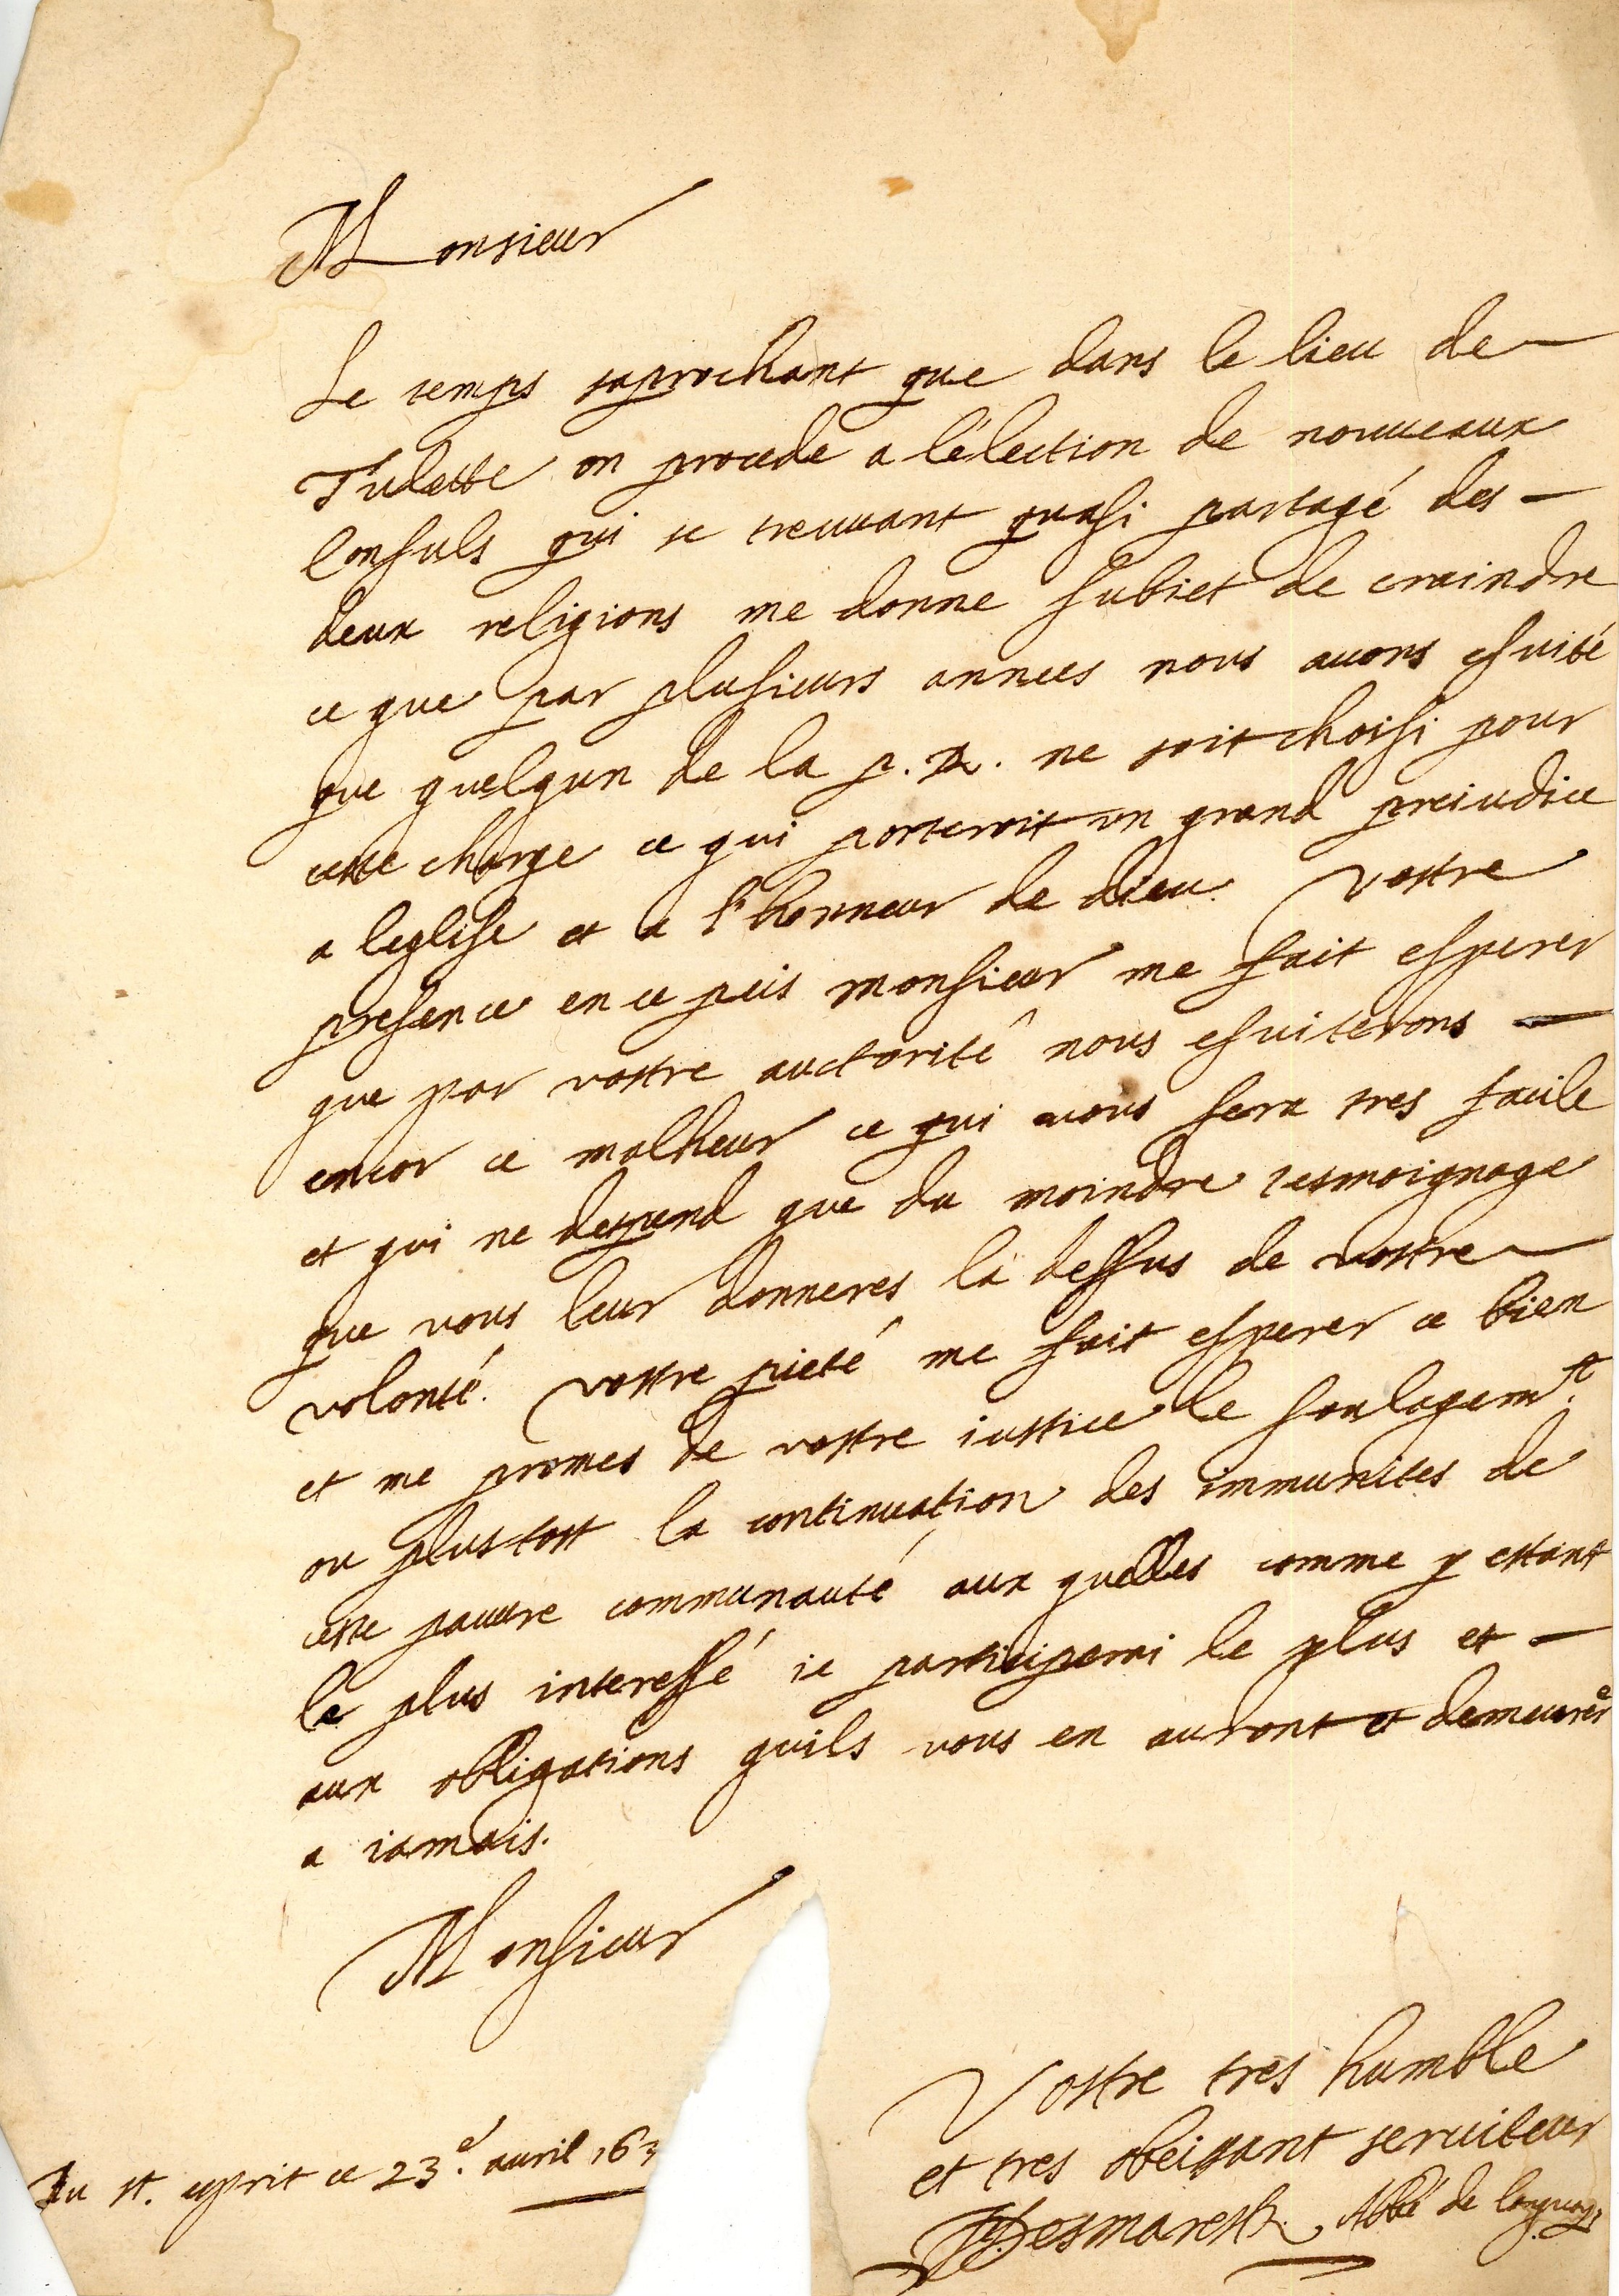 Monsieur
Le temps saprochant que dans le lieu de
Tulette on procede a l'élection de nouueaux
Consuls qui se treuuant quasi partagé des
deux religions me donne subiet de craindre
ce que par plusieurs annees nous auons esuité
que quelqun de la p. R. ne soit choisi pour
cette charge ce qui porteroit un grand preiudice
a leglise et a l'honneur de dieu. Vostre
presence en ce peis monsieur me fait esperer
que par vostre auctorité nous esuiterons
encor ce malheur ce qui vous sera tres facile
et qui ne despend que du moindre tesmoignage
que vous leur donneres la dessus de vostre
volonté. Vostre pieté me fait esperer ce bien
et me promes de vostre iustice le soulagemt.
ou plustost la continuation des immunites de
cette pauure communauté aux quelles comme y estant
le plus interessé ie participerai le plus et
aux obligations quils vous en auront et demeurer
a iamais.
Monsieur
Vostre tres humble
et tres obeissant seruiteur
Du st. esprit ce 23.e auril 163
Desmarestz Abbé de